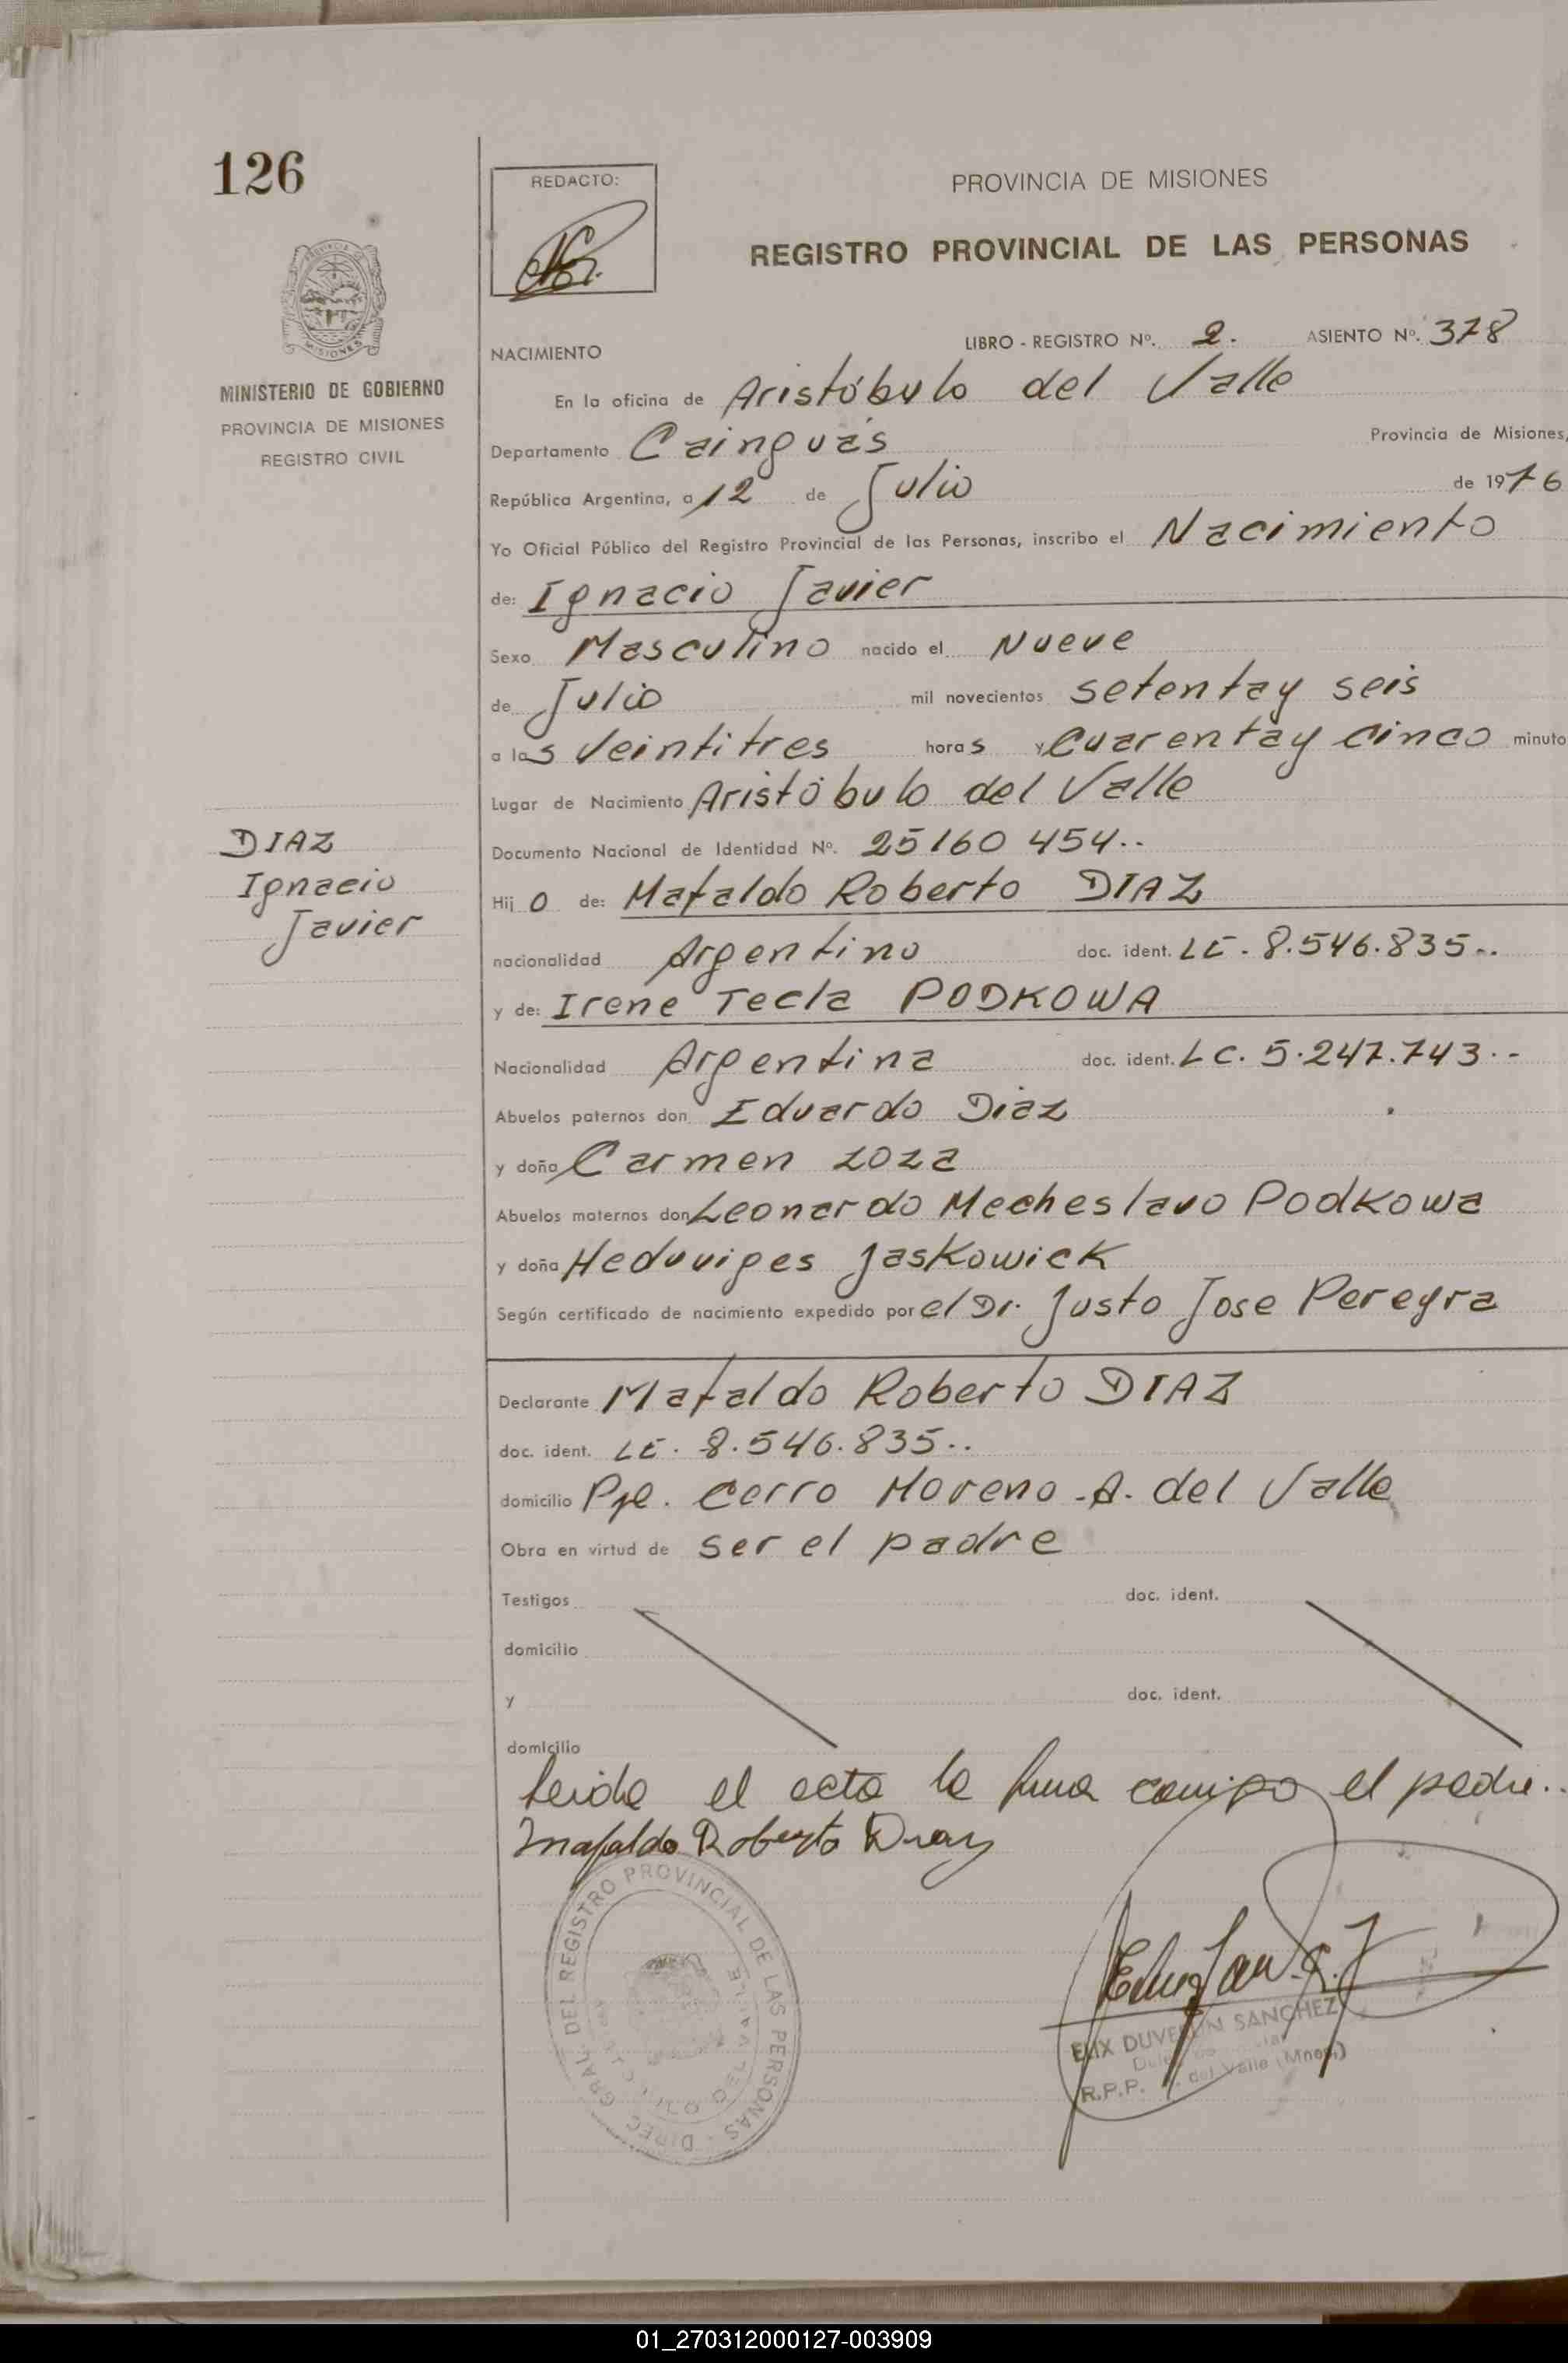 126
PROVINCIA
MISIONES
MINISTERIO DE GOBIERNO
PROVINCIA DE MISIONES
REGISTRO CIVIL
DIAZ
Ignacio
Javier
REDACTO:
PROVINCIA DE MISIONES
REGISTRO PROVINCIAL DE LAS PERSONAS
NACIMIENTO LIBRO - REGISTRO Nº. 2. ASIENTO Nº. 378
En la oficina de Aristóbulo del Valle
Departamento Cainguás Provincia de Misiones,
República Argentina, a 12 de Julio de 1976
Yo Oficial Público del Registro Provincial de las Personas, inscribo el Nacimiento
de: Ignacio Javier
Sexo Masculino nacido el Nueve
de Julio mil novecientos setentay seis
a las veintitres horas y cuarentay cinco minuto
Lugar de Nacimiento Aristóbulo del Valle
Documento Nacional de Identidad Nº. 25160 454..
Hijo de: Mafaldo Roberto DIAZ
nacionalidad Argentino doc. ident. LE. 8.546.835..
y de: Irene Tecla PODKOWA
Nacionalidad Argentina doc. ident. LC. 5.247.743.-
Abuelos paternos don Eduardo Diaz
y doña Carmen Loza
Abuelos maternos don Leonardo Mecheslavo Podkowa
y doña Heduviges Jaskowick
Según certificado de nacimiento expedido por el Dr. Justo Jose Pereyra
Declarante Mafaldo Roberto DIAZ
doc. ident. LE. 8.546.835..
domicilio Pje. Cerro Moreno -A. del Valle
Obra en virtud de ser el padre
Testigos doc. ident.
domicilio
y doc. ident.
domicilio
Leida el acta la firma conmigo el padre..
Mafaldo Roberto Diaz
DIREC. GRAL. DEL REGISTRO PROVINCIAL DE LAS PERSONAS
DEL VALLE
ELIX DUVELIN SANCHEZ
R.P.P. A. del Valle (Mnes.)
01_270312000127-003909